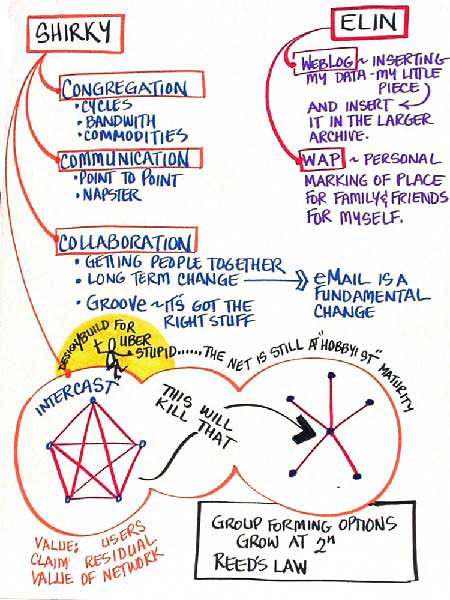 SHIRKY
CONGREGATION
• CYCLES
• BANDWITH
• COMMODITIES
COMMUNICATION
• POINT TO POINT
• NAPSTER
COLLABORATION
• GETTING PEOPLE TOGETHER
• LONG TERM CHANGE
eMAIL IS A
FUNDAMENTAL
CHANGE
• GROOVE ~ IT'S GOT THE
RIGHT STUFF
ELIN
WEBLOG ~ INSERTING
MY DATA - MY LITTLE
PIECE
AND INSERT
IT IN THE LARGER
ARCHIVE.
WAP ~ PERSONAL
MARKING OF PLACE
FOR FAMILY & FRIENDS
FOR MYSELF.
DESIGN/BUILD FOR
UBER
STUPID......THE NET IS STILL AT "HOBBYIST" MATURITY
INTERCAST"
THIS WILL
KILL THAT
VALUE: USERS
CLAIM RESIDUAL
VALUE OF NETWORK
GROUP FORMING OPTIONS
GROW AT 2ⁿ
REED'S LAW